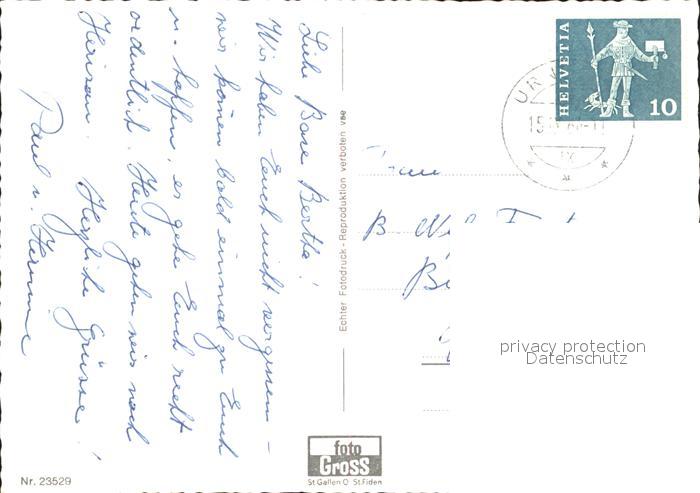 Liebe Base Bertha!
Wir haben Euch nicht vergessen –
wir kommen bald einmal zu Euch
u. hoffen, es gehe Euch recht
ordentlich. Heute gehen wir nach
Herisau. Herzliche Grüsse!
Paul u. Hermine
Echter Fotodruck - Reproduktion verboten
HELVETIA
10
URN
15
IX
B
privacy protection
Datenschutz
foto
Gross
St.Gallen O St.Fiden
Nr. 23529